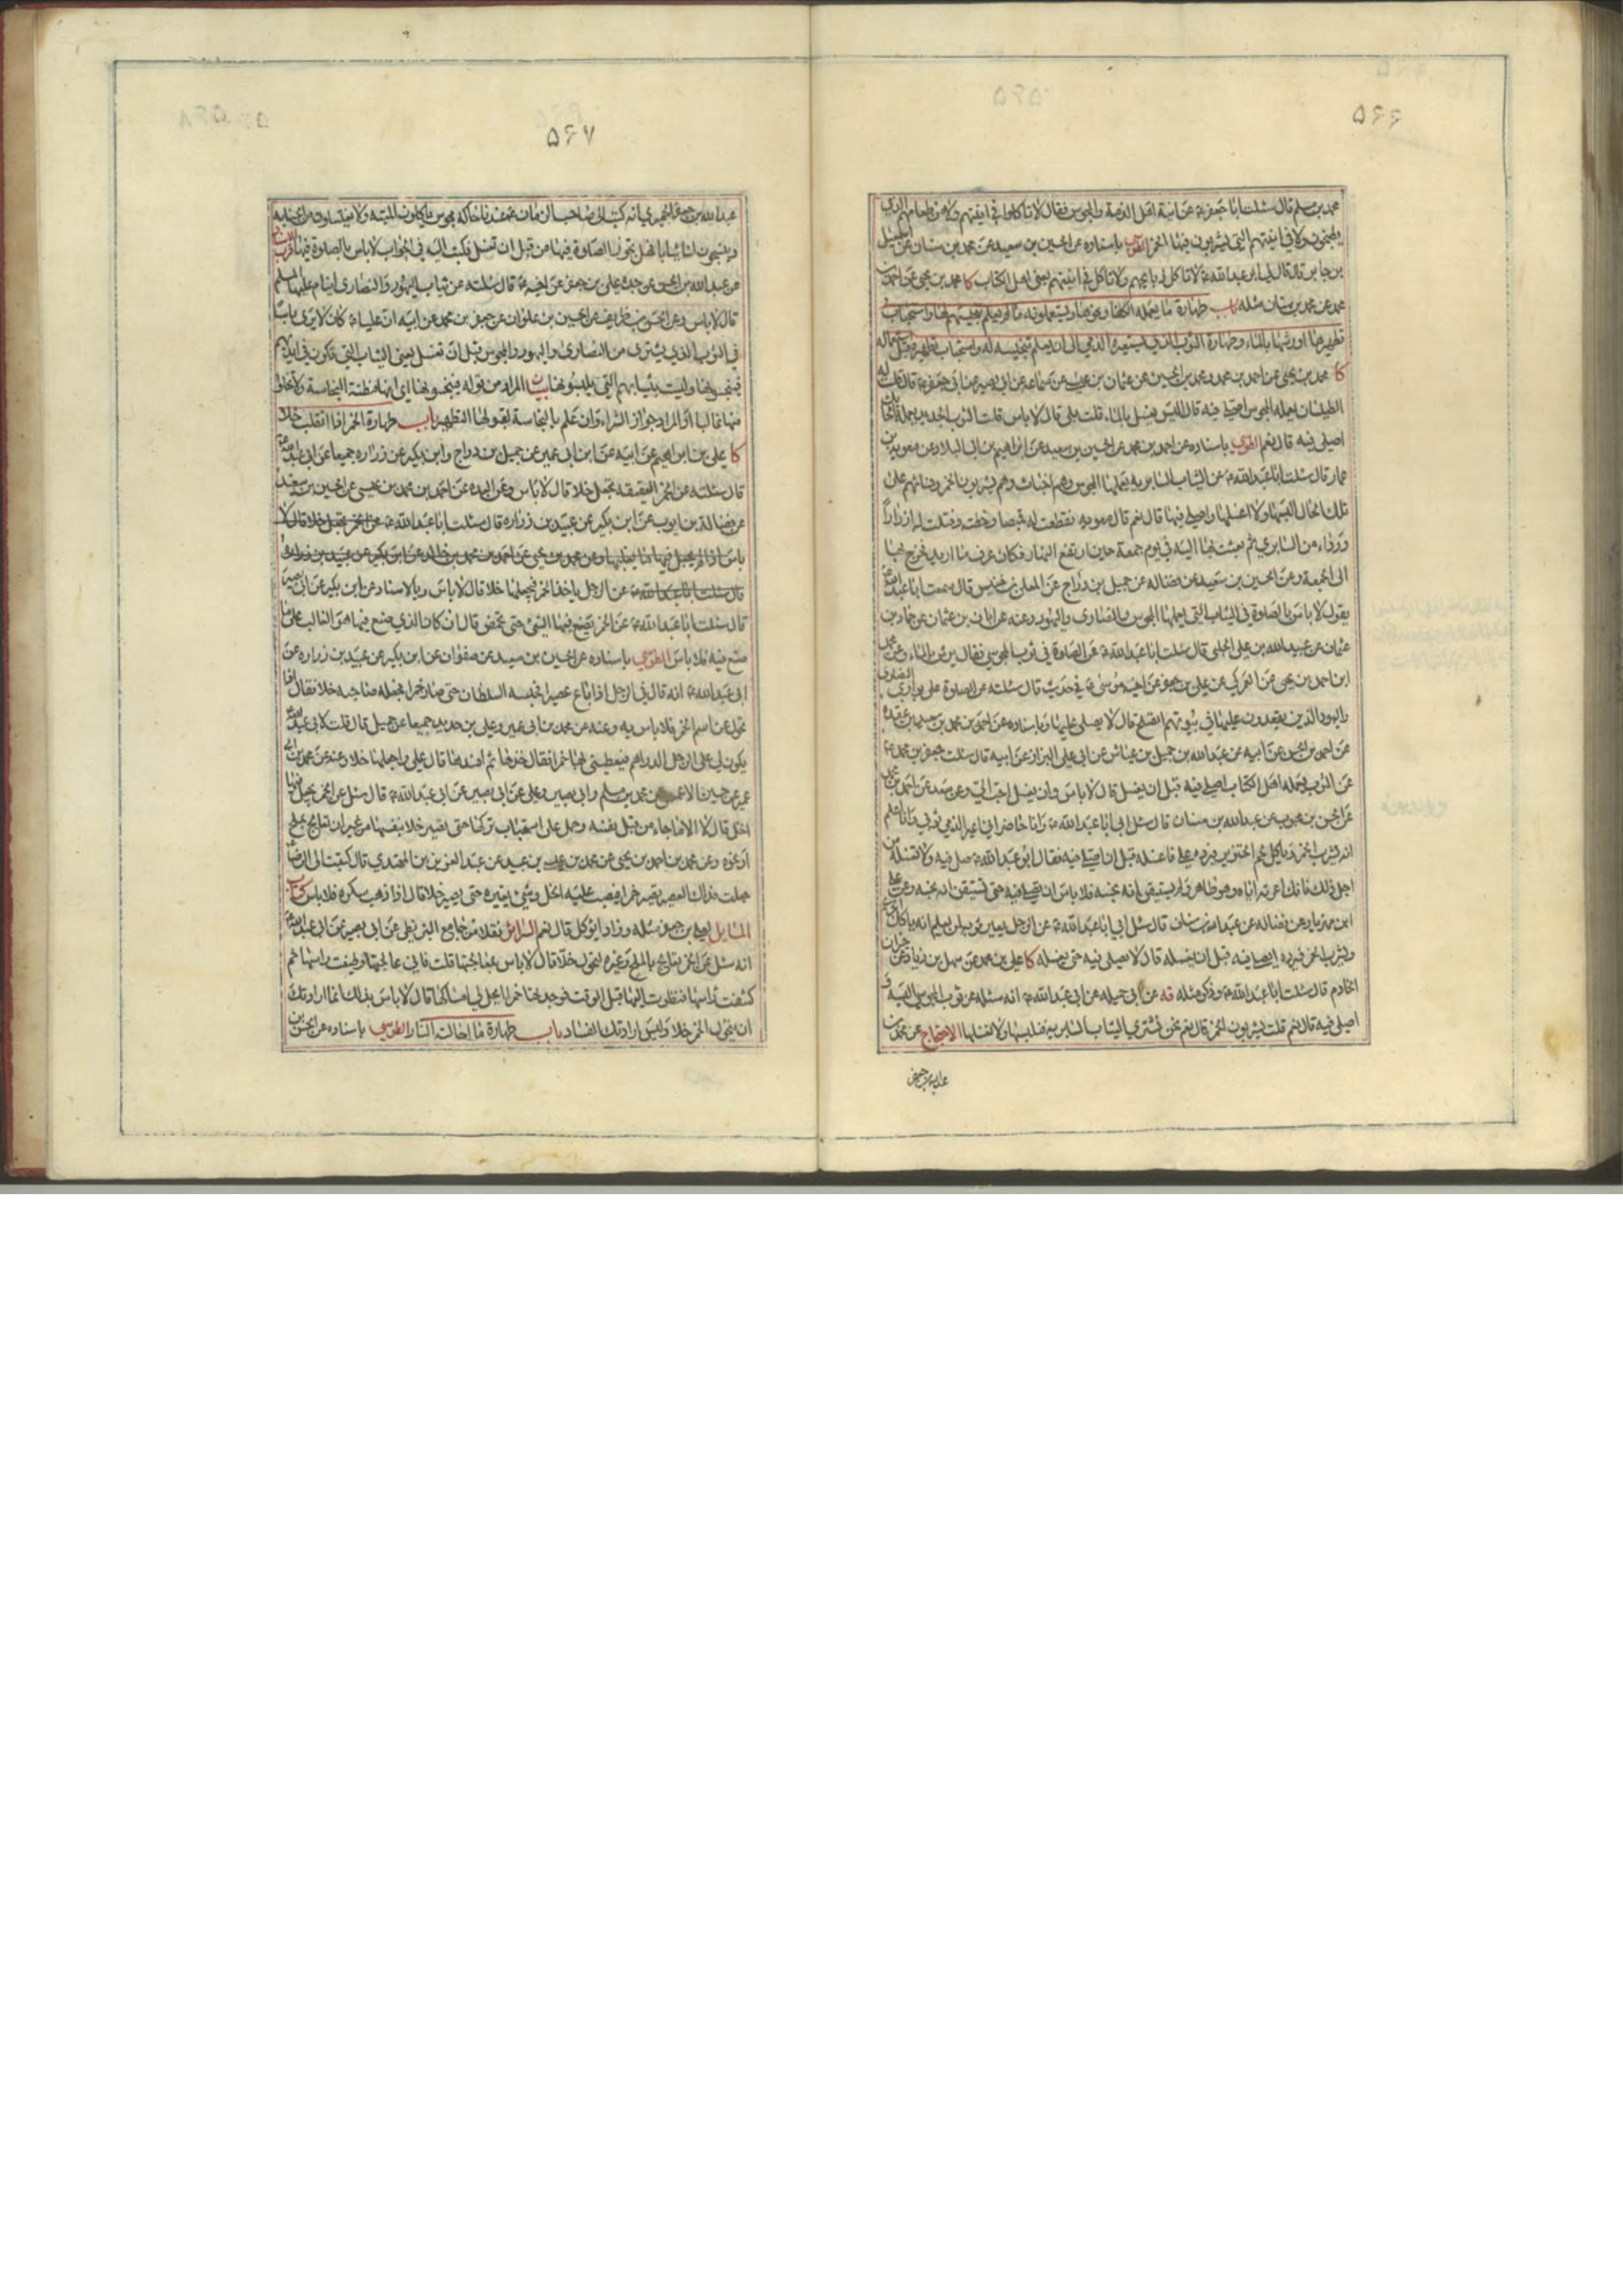 ۵۶۶
محمد بن مسلم قال سئلت ابا جعفر ع عن انية اهل الذمة والمجوس فقال لا تاكلوا في انيتهم ولا من طعامهم الذي
يطبخون ولا في انيتهم التي يشربون فيها الخمر الطوسي باسناده عن الحسين بن سعيد عن محمد بن سنان عن اسمعيل
بن جابر قال قال لي ابو عبد الله ع لا تاكل ذبايحهم ولا تاكل في انيتهم يعني اهل الكتاب كا محمد بن يحيى عن احمد بن
محمد عن محمد بن سنان مثله باب طهارة ما يعمله الكفار من الثياب ويستعملونه ما لم يعلم تنجيسهم لها واستحباب
تطهيرها او رشها بالماء وطهارة الثوب الذي يستعيره الذمي الى ان يعلم تنجيسه له واستحباب تطهيره قبل استعماله
كا محمد بن يحيى عن احمد بن محمد ومحمد بن الحسين عن عثمان بن عيسى عن سماعة عن ابي بصير عن ابي جعفر ع قال قلت له
الطيلسان يعمله المجوس اصلي فيه قال اليس يغسل بالماء قلت بلى قال لا باس قلت الثوب الجديد يعمله الحائك
اصلي فيه قال نعم الطوسي باسناده عن احمد بن محمد عن الحسين بن سعيد عن ابراهيم بن ابي البلاد عن معوية بن
عمار قال سئلت ابا عبد الله ع عن الثياب السابرية يعملها المجوس وهم اخباث وهم يشربون الخمر ونسائهم على
تلك الحال البسها ولا اغسلها واصلي فيها قال نعم قال معوية فقطعت له قميصا وخطته وفتلت له ازرارا
ورداء من السابري ثم بعثت بها اليه في يوم جمعة حين ارتفع النهار فكانه عرف ما اريد فخرج بها
الى الجمعة وعن الحسين بن سعيد عن فضالة عن جميل بن دراج عن المعلى بن خنيس قال سمعت ابا عبد الله ع
يقول لا باس بالصلوة في الثياب التي يعملها المجوس والنصارى واليهود وعنه عن ابان بن عثمان عن حماد بن
عثمان عن عبيد الله بن علي الحلبي قال سئلت ابا عبد الله ع عن الصلوة في ثوب المجوسي فقال يرش بالماء وعن محمد
ابن احمد بن يحيى عن العمركي عن علي بن جعفر عن اخيه موسى ع في حديث قال سئلته عن الصلوة على بواري النصارى
واليهود الذين يقعدون عليها في بيوتهم اتصلح قال لا يصلى عليها وباسناده عن احمد بن محمد بن سعيد بن عقدة
عن احمد بن الحسن عن ابيه عن عبد الله بن جميل بن عياش عن ابي علي البزاز عن ابيه قال سئلت جعفر بن محمد ع
عن الثوب يعمله اهل الكتاب اصلي فيه قبل ان يغسل قال لا باس وان يغسل احب الي وعن سعد عن احمد بن محمد
عن الحسن بن محبوب عن عبد الله بن سنان قال سئل ابي ابا عبد الله ع وانا حاضر اني اعير الذمي ثوبي وانا اعلم
انه يشرب الخمر وياكل لحم الخنزير فيرده علي فاغسله قبل ان اصلي فيه فقال ابو عبد الله ع صل فيه ولا تغسله من
اجل ذلك فانك اعرته اياه وهو طاهر ولم تستيقن انه نجسه فلا باس ان تصلي فيه حتى تستيقن انه نجسه وعن علي
ابن مهزيار عن فضالة عن عبد الله بن سنان قال سئل ابي ابا عبد الله ع عن الرجل يعير ثوبه لمن يعلم انه ياكل
ويشرب الخمر فيرده ايصلي فيه قبل ان يغسله قال لا يصلي فيه حتى يغسله كا علي بن محمد عن سهل بن زياد عن خيران
الخادم قال سئلت ابا عبد الله ع وذكر مثله قه عن ابي جميلة عن ابي عبد الله ع انه سئله عن ثوب المجوسي البسه و
اصلي فيه قال نعم قلت يشربون الخمر قال نعم نحن نشتري الثياب السابرية فنلبسها ولا نغسلها الاحتجاج عن محمد بن
عبد الله بن جعفر
۵۶۷
عبد الله بن جعفر الحميري انه كتب الى صاحب الزمان ع عندنا حاكة مجوس ياكلون الميتة ولا يغتسلون من الجنابة
وينسجون لنا ثيابا فهل تجوز الصلوة فيها من قبل ان تغسل فكتب اليه في الجواب لا باس بالصلوة فيها قرب الاسناد
عن عبد الله بن الحسن عن جده علي بن جعفر عن اخيه ع قال سئلته عن ثياب اليهود والنصارى اينام عليها المسلم
قال لا باس وعن الحسن بن ظريف عن الحسين بن علوان عن جعفر بن محمد عن ابيه ان عليا ع كان لا يرى باسا
في الثوب الذي يشترى من النصارى واليهود والمجوس قبل ان تغسل يعني الثياب التي تكون في ايديهم
فينجسونها وليست بثيابهم التي يلبسونها بيان المراد من قوله فينجسونها اي انها مظنة النجاسة ولا تخلو
منها غالبا او المراد جواز الشراء وان علم بالنجاسة لقبولها التطهير باب طهارة الخمر اذا انقلبت خلا
كا علي بن ابراهيم عن ابيه عن ابن ابي عمير عن جميل بن دراج وابن بكير عن زرارة جميعا عن ابي عبد الله ع
قال سئلته عن الخمر العتيقة تجعل خلا قال لا باس وعن العدة عن احمد بن محمد بن عيسى عن الحسين بن سعيد
عن فضالة بن ايوب عن ابن بكير عن عبيد بن زرارة قال سئلت ابا عبد الله ع عن الخمر تجعل خلا قال لا
باس اذا لم يجعل فيها ما يغلبها وعن محمد بن يحيى عن احمد بن محمد بن خالد عن ابن بكير عن عبيد بن زرارة
قال سئلت ابا عبد الله ع عن الرجل ياخذ الخمر فيجعلها خلا قال لا باس وبالاسناد عن ابن بكير عن ابي بصير
قال سئلت ابا عبد الله ع عن الخمر يصنع فيها الشيء حتى تحمض قال ان كان الذي صنع فيها هو الغالب على ما
صنع فيه فلا باس الطوسي باسناده عن الحسين بن سعيد عن صفوان عن ابن بكير عن عبيد بن زرارة عن
ابي عبد الله ع انه قال في الرجل اذا باع عصيرا فحبسه السلطان حتى صار خمرا فجعله صاحبه خلا فقال اذا
تحول عن اسم الخمر فلا باس به وعنه عن محمد بن ابي عمير وعلي بن حديد جميعا عن جميل قال قلت لابي عبد الله ع
يكون لي على الرجل الدراهم فيعطيني بها خمرا فقال خذها ثم افسدها قال علي واجعلها خلا وعنه عن محمد بن ابي
عمير عن حسين الاحمسي عن محمد بن مسلم وابي بصير وعلي عن ابي بصير عن ابي عبد الله ع قال سئل عن الخمر يجعل فيها
الخل قال لا الا ما جاء من قبل نفسه وحمل على استحباب تركها حتى تصير خلا بنفسها من غير ان تعالج بملح
او غيره وعن محمد بن احمد بن يحيى عن محمد بن عيسى بن عبيد عن عبد العزيز بن المهتدي قال كتبت الى الرضا ع
جعلت فداك العصير يصير خمرا فيصب عليه الخل وشيء يغيره حتى يصير خلا قال لا باس به كتاب
المسايل لعلي بن جعفر مثله وزاد ايؤكل قال نعم السرائر نقلا من جامع البزنطي عن ابي بصير عن ابي عبد الله ع
انه سئل عن الخمر تعالج بالملح وغيره لتحول خلا قال لا باس بمعالجتها قلت فاني عالجتها وطينت راسها ثم
كشفت راسها فنظرت اليها قبل الوقت فوجدتها خمرا ايحل لي امساكها قال لا باس بذلك انما ارادتك
ان يتحول الخمر خلا وليس ارادتك الفساد باب طهارة ما احالته النار الطوسي باسناده عن الحسن بن